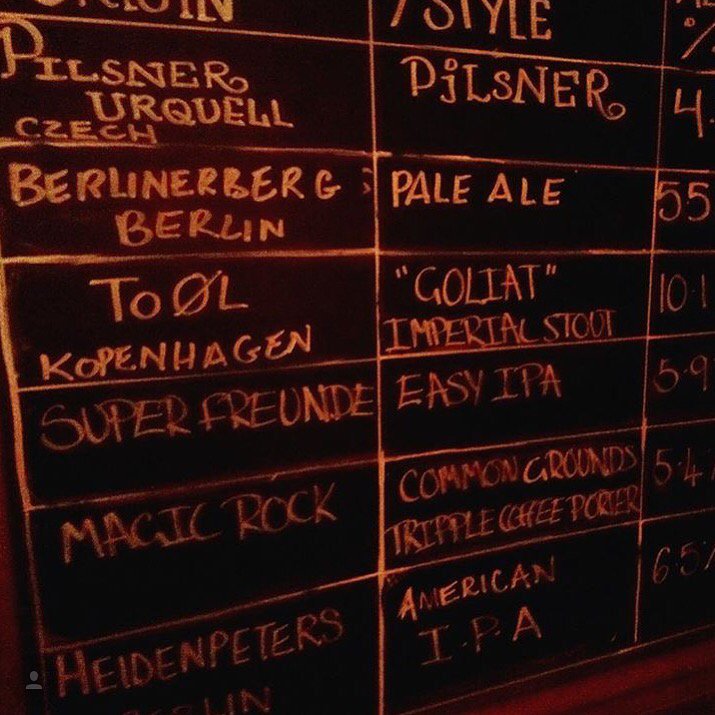 /STYLE
%
PILSNER
URQUELL
CZECH
PiLSNER
4.
BERLINERBERG
BERLIN
PALE ALE
55
TO ØL
KOPENHAGEN
"GOLIAT"
IMPERIAL STOUT
10.1
SUPER FREUNDE
EASY IPA
5.9
MAGIC ROCK
COMMON GROUNDS
TRIPPLE COFFEE PORTER
5.4%
HEIDENPETERS
BERLIN
AMERICAN
I.P.A
6.5%